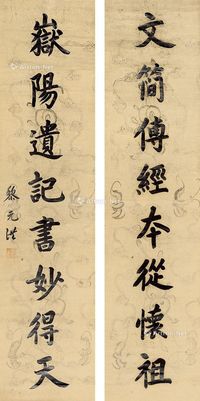 文简傳經本從懷祖
嶽陽遺記書妙得天
黎元洪